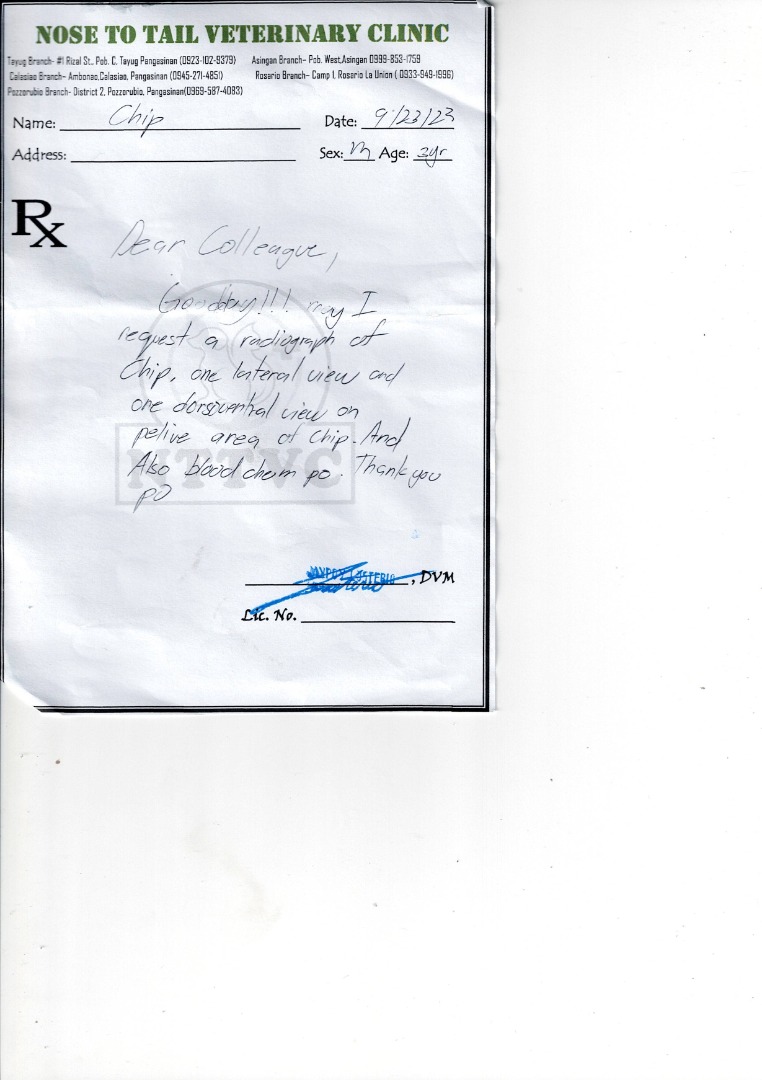 NOSE TO TAIL VETERINARY CLINIC
Tayug Branch- #1 Rizal St., Pob. C, Tayug Pangasinan (0923-102-9379) Asingan Branch- Pob. West,Asingan 0999-853-1759
Calasiao Branch- Ambonao,Calasiao, Pangasinan (0945-271-4851) Rosario Branch- Camp 1, Rosario La Union ( 0933-949-1996)
Pozzorubio Branch- District 2, Pozzorubio, Pangasinan(0969-587-4083)
Name: Chip Date: 9/23/23
Address: Sex: M Age: 3yr
Rx
Dear Colleague,
Goodday!!! may I
request a radiograph of
Chip, one lateral view and
one dorsoventral view on
pelive area of Chip. And
Also blood chem po. Thank you
po
NTTVC
, DVM
Lic. No.